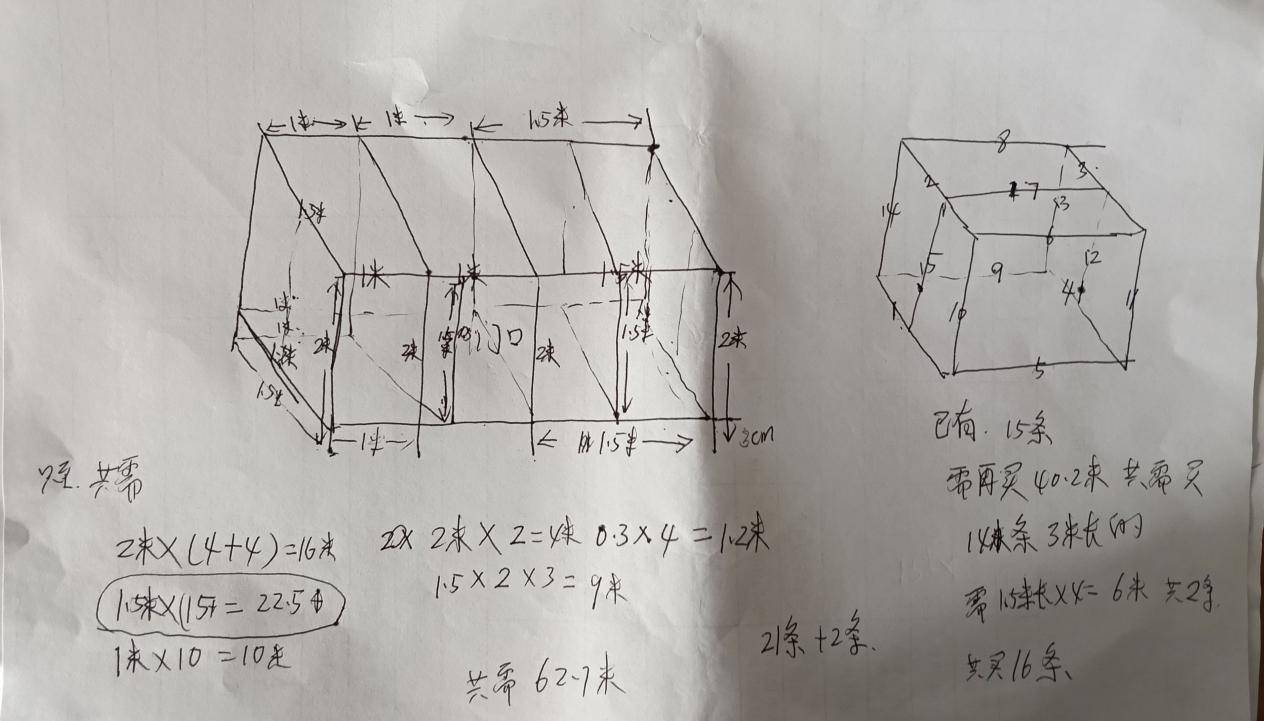 1米 1米 1.5米
1.5米
1米 1米 1.5米
1米
1米
2米 2米 1.5米 门口 2米 1.5米 2米
1.5米
1米 1.5米 3cm
共需
2米×(4+4)=16米
1.5米×(15)=22.5
1米×10=10米
2米×2=4米 0.3×4=1.2米
1.5×2×3=9米
共需 62.7米
21条+2条.
8
2 7 3
14 13
15 9 12
1 10 4 11
5
已有. 15条
需再买 40.2米 共需买
14条 3米长的
需 1.5米长×4=6米 共2条.
共买16条.